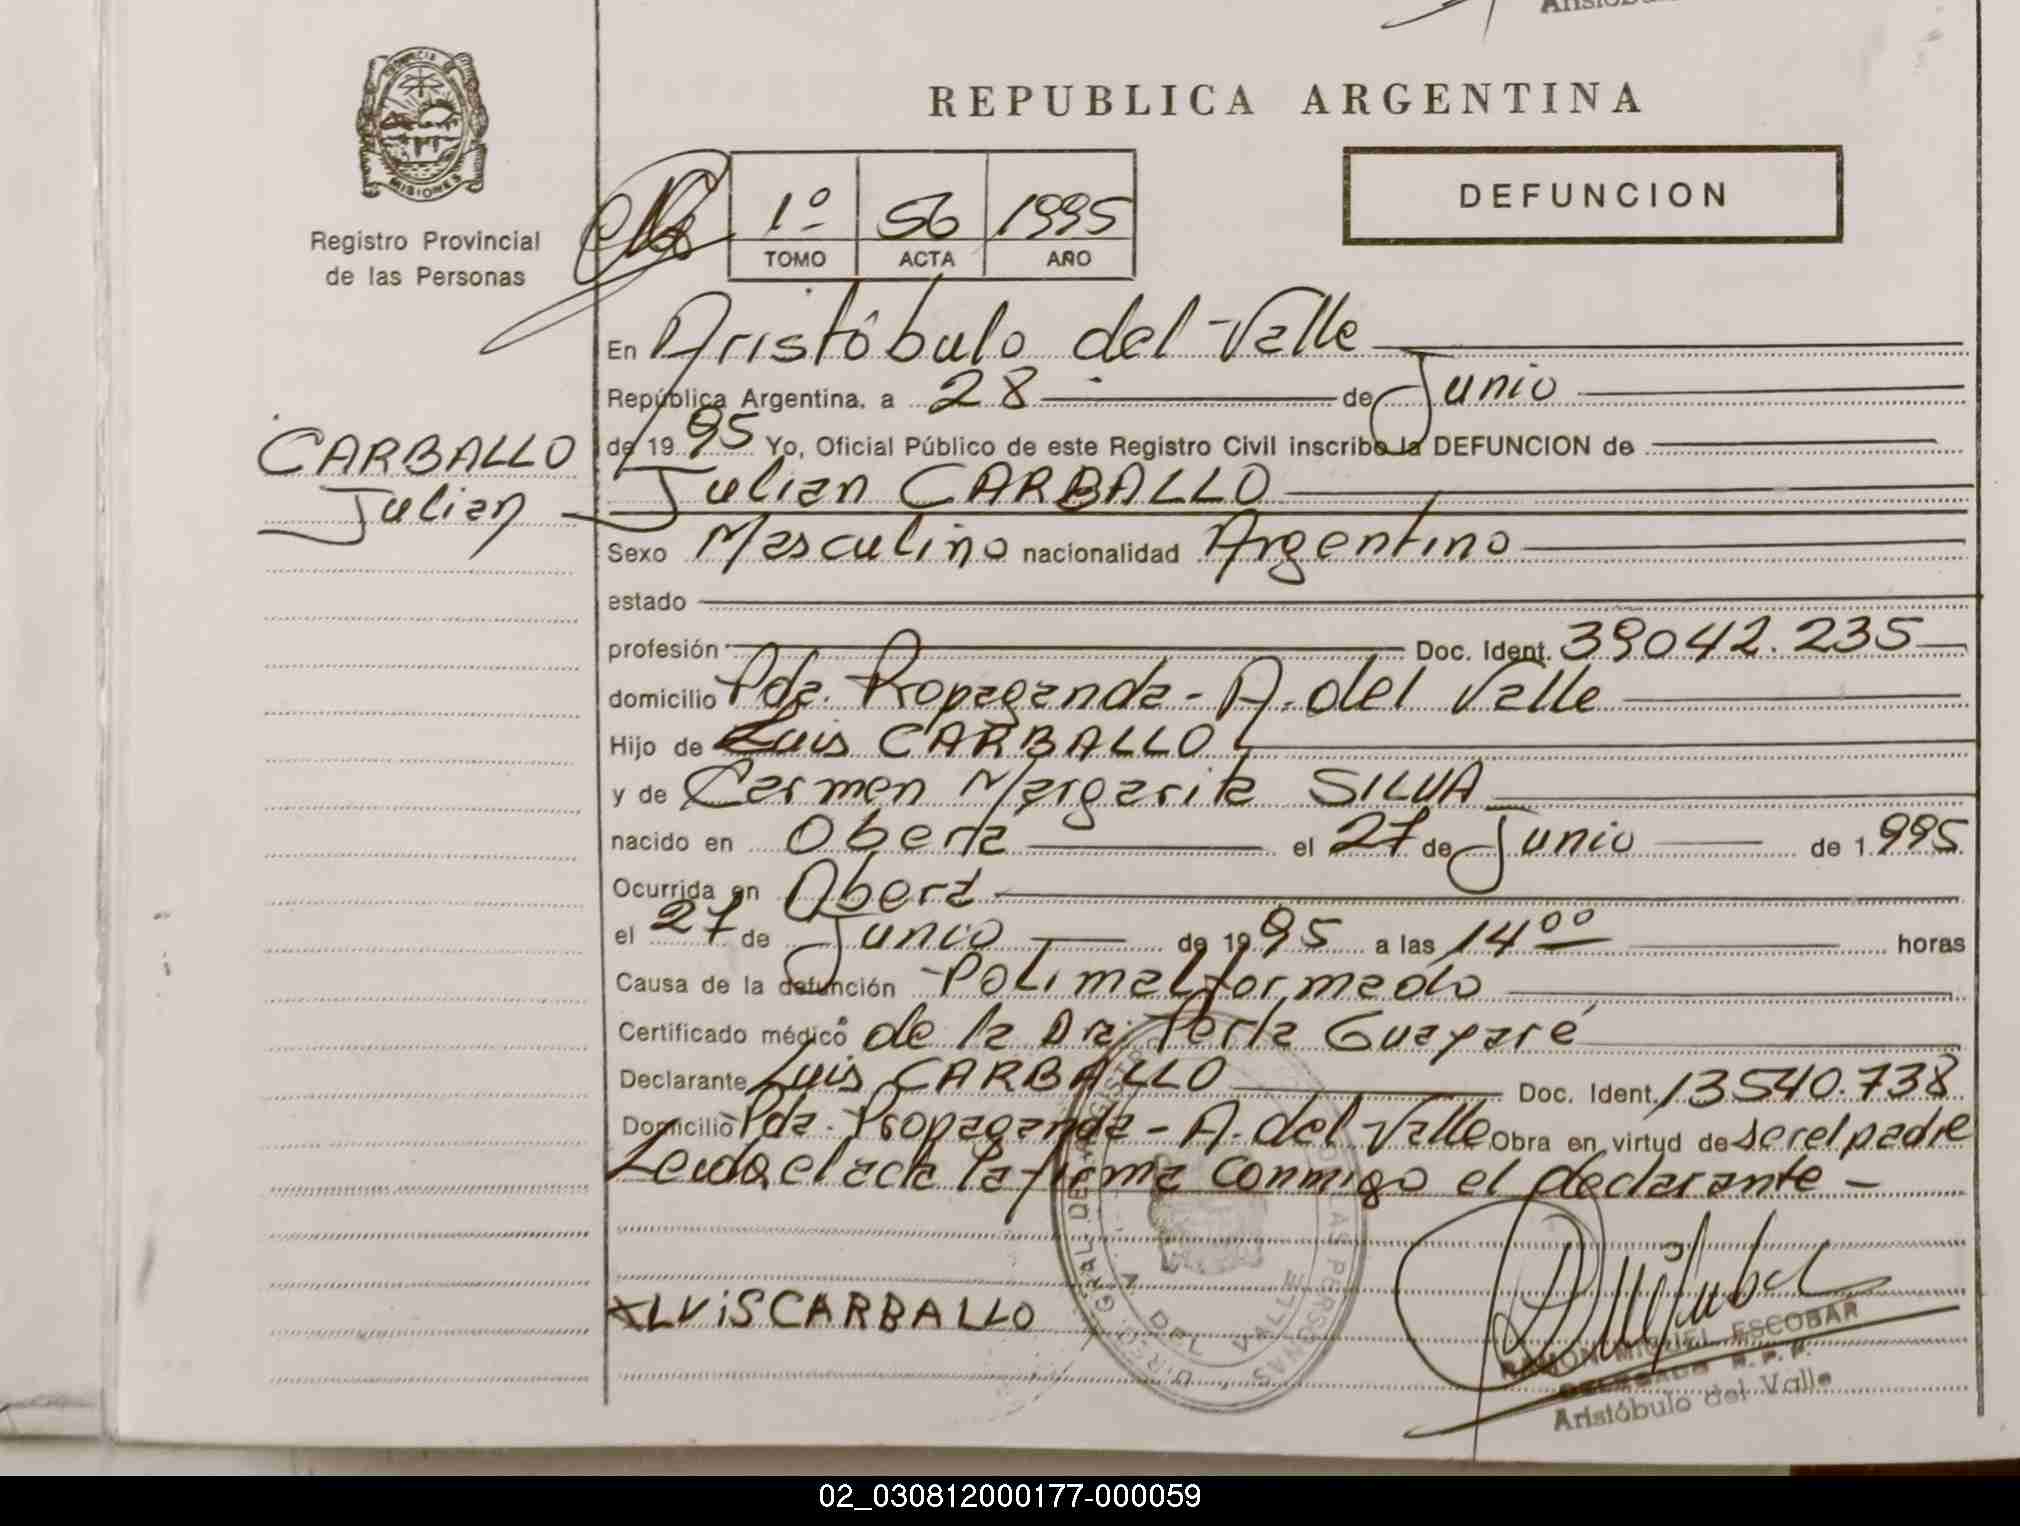 REPUBLICA ARGENTINA
PROVINCIA
MISIONES
Registro Provincial
de las Personas
1º 56 1995
TOMO ACTA AÑO
DEFUNCION
En Aristóbulo del Valle
República Argentina, a 28 de Junio
de 1995 Yo, Oficial Público de este Registro Civil inscribo la DEFUNCION de
CARBALLO
Julian
Julian CARBALLO
Sexo Masculino nacionalidad Argentino
estado
profesión Doc. Ident. 39042.235
domicilio Pda. Propaganda - A. del Valle
Hijo de Luis CARBALLO
y de Carmen Margarita SILVA
nacido en Obera el 27 de Junio de 1.995
Ocurrida en Obera
el 27 de Junio de 1995 a las 14 00 horas
Causa de la defunción Polimalformado
Certificado médico de la Dra. Perla Guayaré
Declarante Luis CARBALLO Doc. Ident. 13540.738
Domicilio Pda. Propaganda - A. del Valle Obra en virtud de ser el padre
Leida el acta la firma conmigo el declarante -
X LUiS CARBALLO
RAMON MIGUEL ESCOBAR
DELEGADO R.P.P.
Aristóbulo del Valle
02_030812000177-000059